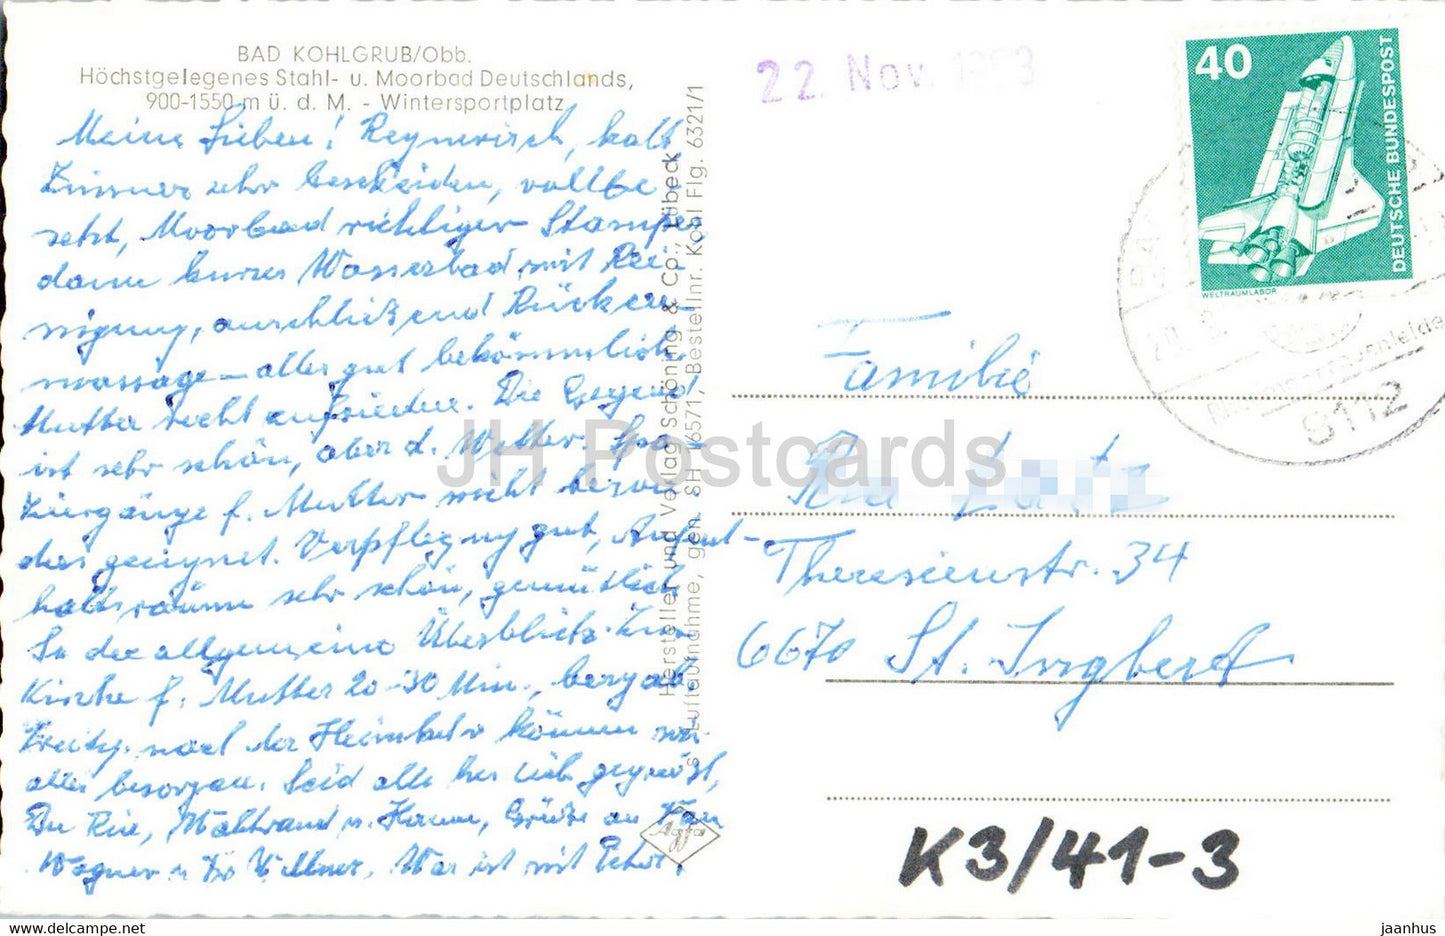 BAD KOHLGRUB/Obb.
Höchstgelegenes Stahl- u. Moorbad Deutschlands,
900-1550 m ü. d. M. - Wintersportplatz
Meine Lieben! Regnerisch, kalt,
Zimmer sehr bescheiden, vollbe-
setzt, Moorbad richtiger Stampes
dann kurzes Wasserbad mit Rei-
nigung, anschließend Rücken-
massage - alles gut bekömmlich.
Mutter recht zufrieden. Die Gegend
ist sehr schön, aber d. Wetter. Spa-
ziergänge f. Mutter nicht beson-
ders geeignet. Verpflegung gut, Aufent-
haltsräume sehr schön, gemütlich
In der allgemeine Überblick. Zur
Kirche f. Mutter 20-30 Min., bergab.
nach der Heimkehr können wir
alles besorgen. Seid alle herzlich gegrüßt,
Du Ria, Waltraud u. Grüße an Frau
Wagner u. War ist mit Peter.
Hersteller und Verlag Schöning & Co., Lübeck
Luftaufnahme, gen. SH 16571, Bestellnr. Kohl Flg. 6321/1
Agfa
22. Nov. 1983
40
DEUTSCHE BUNDESPOST
WELTRAUMLABOR
8112
Familie
Ria
Theresienstr. 34
6670 St. Ingbert
K3/41-3
JH Postcards
jaanhus